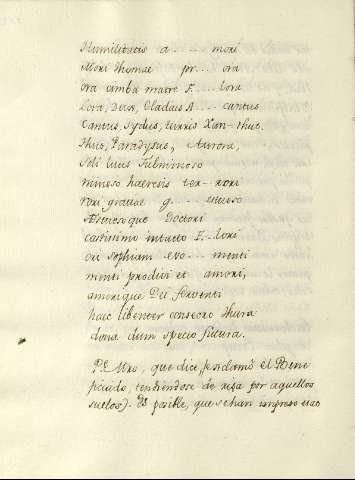 Humilitatis a.... mori
Mori Thomae pr.... ora
ora simba matre F.... Lora
Lora, Deus, Cladius A.... cantus
Cantus, Sydus, terris Xan-thus.
Thus, Paradysus, Aurora,
Soli lucis Fulminoso
minoso haeresis ter--rori
rori gratiae g.... encoso
Aestreseque Doctori
castissimo intacto F..lori
ori sophiam evo....menti
menti prodivi et amori,
amorique Dei ferventi
haec libenter consecro thura
dona dum specio futura.
Pe. Mro, que dice, (esclamó el Bene
placido, tendiendose de risa por aquellos
suelos). Es posible, que se han impreso esas